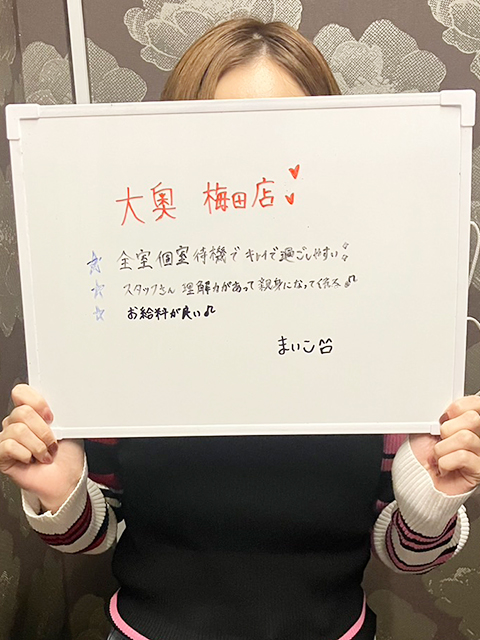 大奥 梅田店
☆ 全室個室待機でキレイで過ごしやすい
☆ スタッフさん理解力があって親身になってくれる♫
☆ お給料が良い♫
まいこ